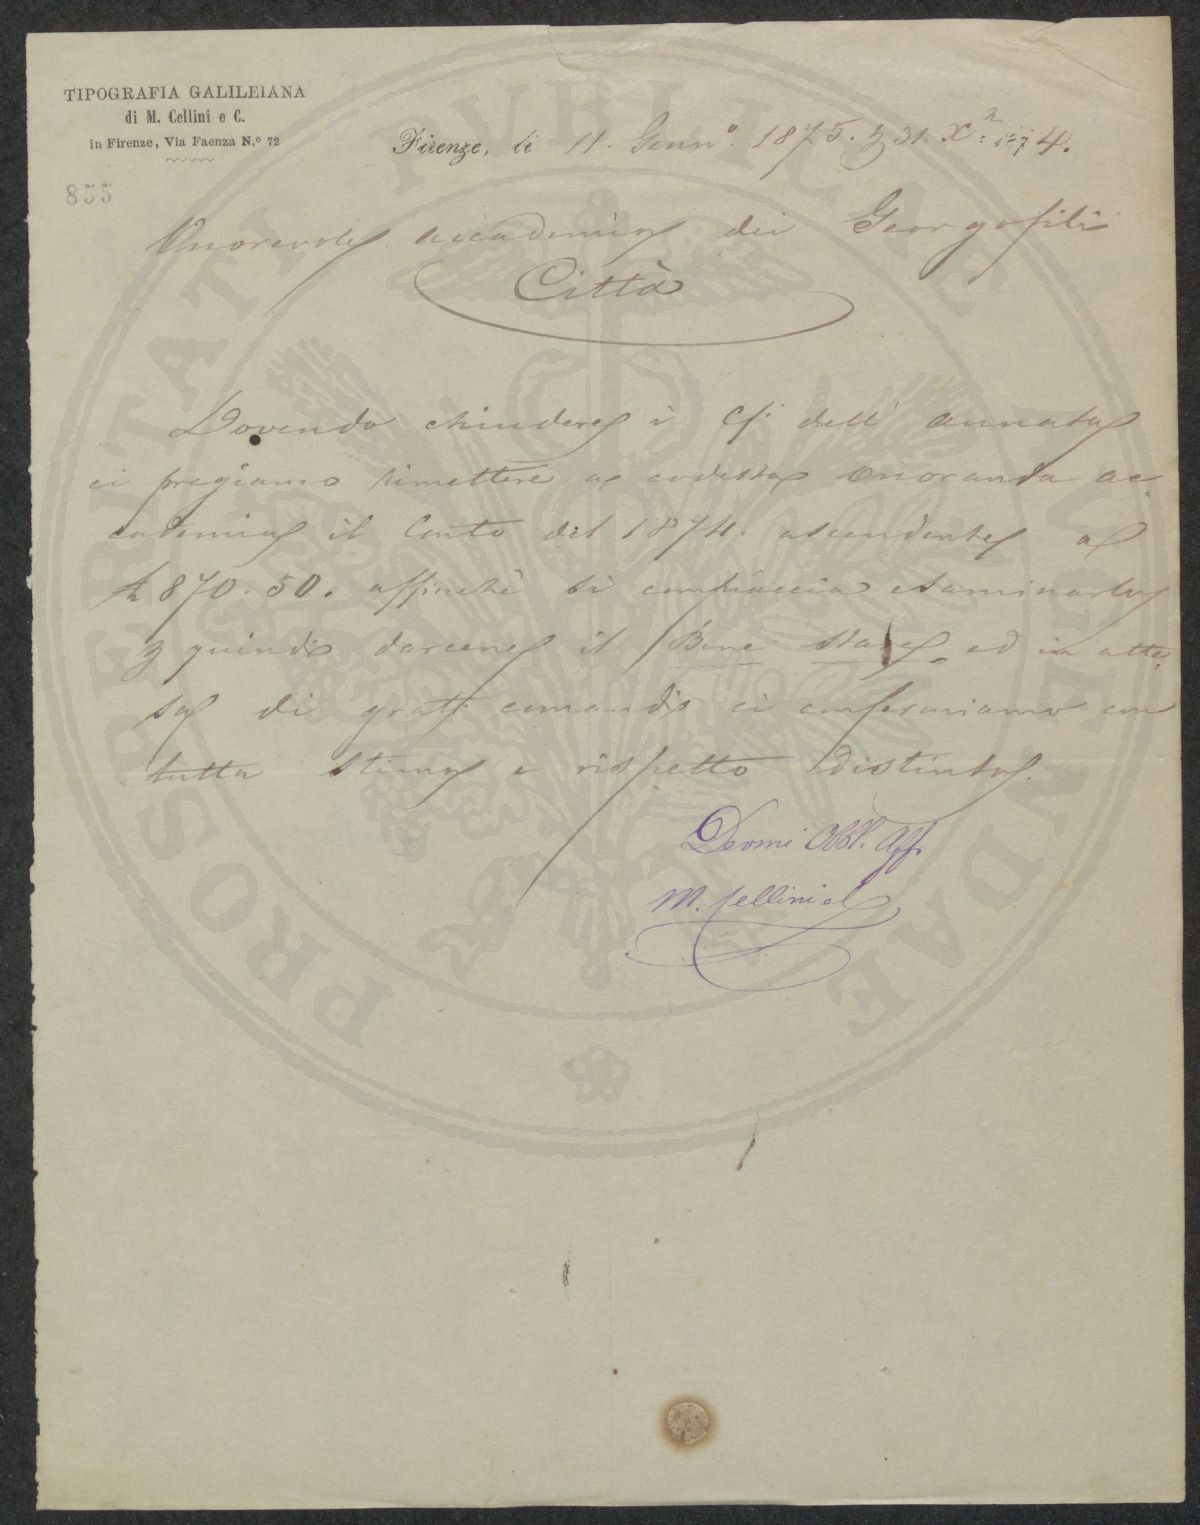 TIPOGRAFIA GALILEIANA
di M. Cellini e C.
in Firenze, Via Faenza N.º 72
855
Firenze, li 11. Gennº. 1875. p 31. Xº. 1874.
Onorevole Accademia dei Georgofili
Città
Dovendo chiudere i C/i dell' annata
ci pregiamo rimettere a codesta Onoranda Ac=
cademia il Conto del 1874. ascendente a
£ 870.50. affinchè si compiaccia esaminarlo
e quindi darcene il Bene stare. ed in atte=
sa di grati comandi ci confermiamo con
tutta stima e rispetto distinto.
Devmi Obbl. Aff.
M. Cellini e C
PROSPERITATI PUBLICAE AUGENDAE